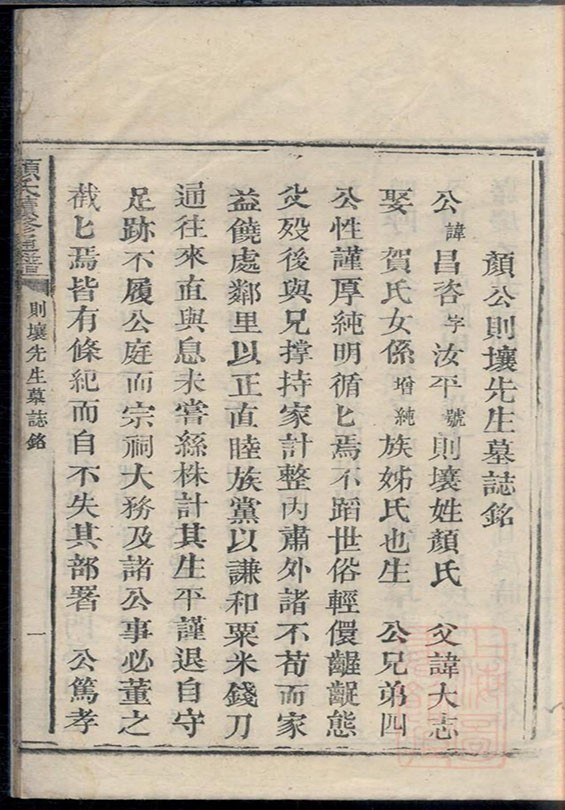 顏公則壤先生墓誌銘
公諱昌咨字汝平號則壤姓顏氏 父諱大志
娶 賀氏女係增純族姊氏也生 公兄弟四
公性謹厚純明循匕焉不蹈世俗輕儇齷齪態
父歿後與兄撐持家計整內肅外諸不苟而家
益饒處鄰里以正直睦族黨以謙和粟米錢刀
通往來直與息未嘗絲株計其生平謹退自守
足跡不履公庭而宗祠大務及諸公事必董之
截匕焉皆有條紀而自不失其部署 公篤孝
顏氏續修通譜
則壤先生墓誌銘
一